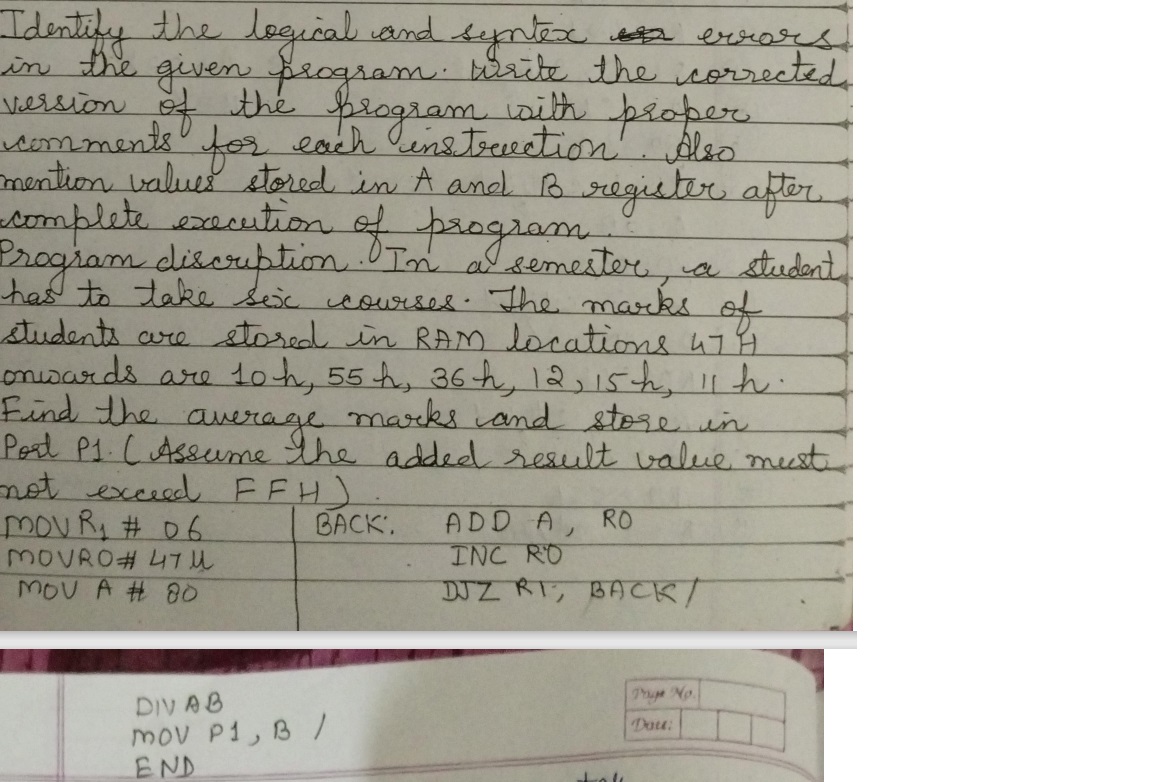 Identify the logical and syntex errors
in the given program. Write the corrected
version of the program with proper
comments for each instruction. Also
mention values stored in A and B register after
complete execution of program.
Program discruption. In a semester, a student
has to take six courses. The marks of
students are stored in RAM locations 47 H
onwards are 10 h, 55 h, 36 h, 12, 15 h, 11 h.
Find the average marks and store in
Port P1. (Assume the added result value must
not exceed FFH)
MOV R1 # 06
MOV R0 # 47 H
MOV A # 80
BACK: ADD A, R0
INC R0
DJZ R1, BACK /
DIV AB
MOV P1, B /
END
Page No.
Date: